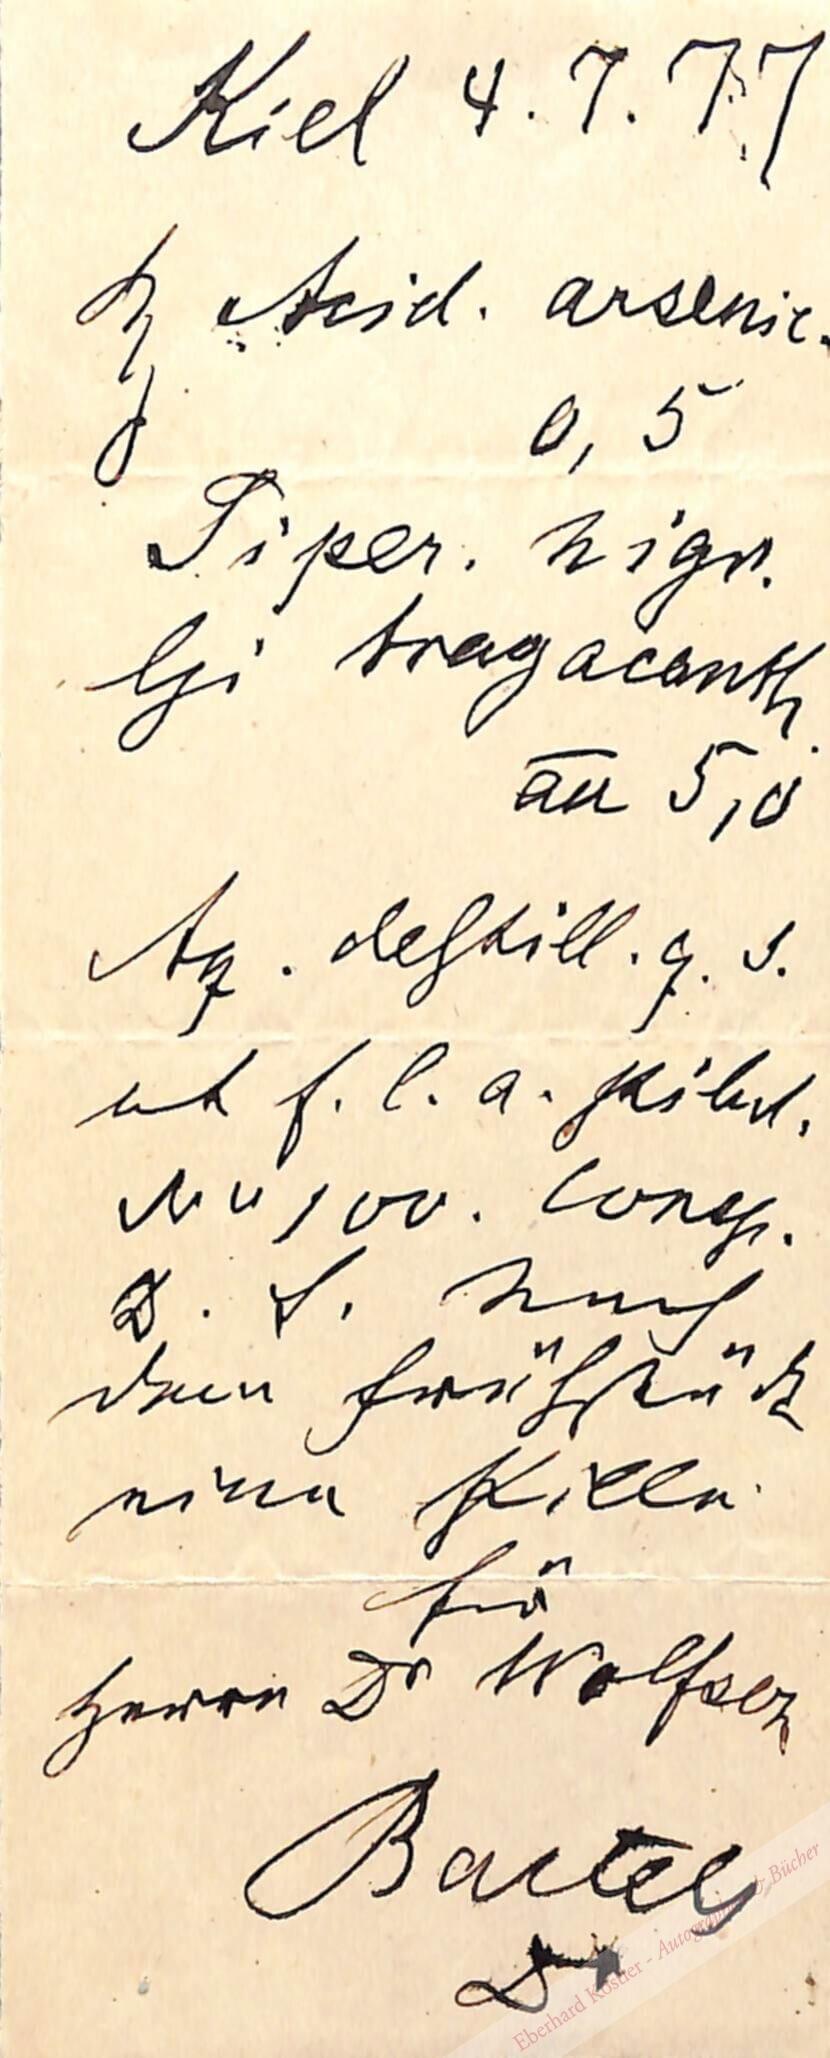 Kiel 4. 7. 77
Rp Acid. arsenic.
0,5
Piper. nigr.
tragacanth.
āa 5,0
Aq. destill. q. s.
ut f. l. a. pilul.
No 100. Consp.
D. S. Nach
dem Frühstück
eine Pille.
für
Herrn Dr
Bartels
Dr
Eberhard Köstler - Autographen & Bücher